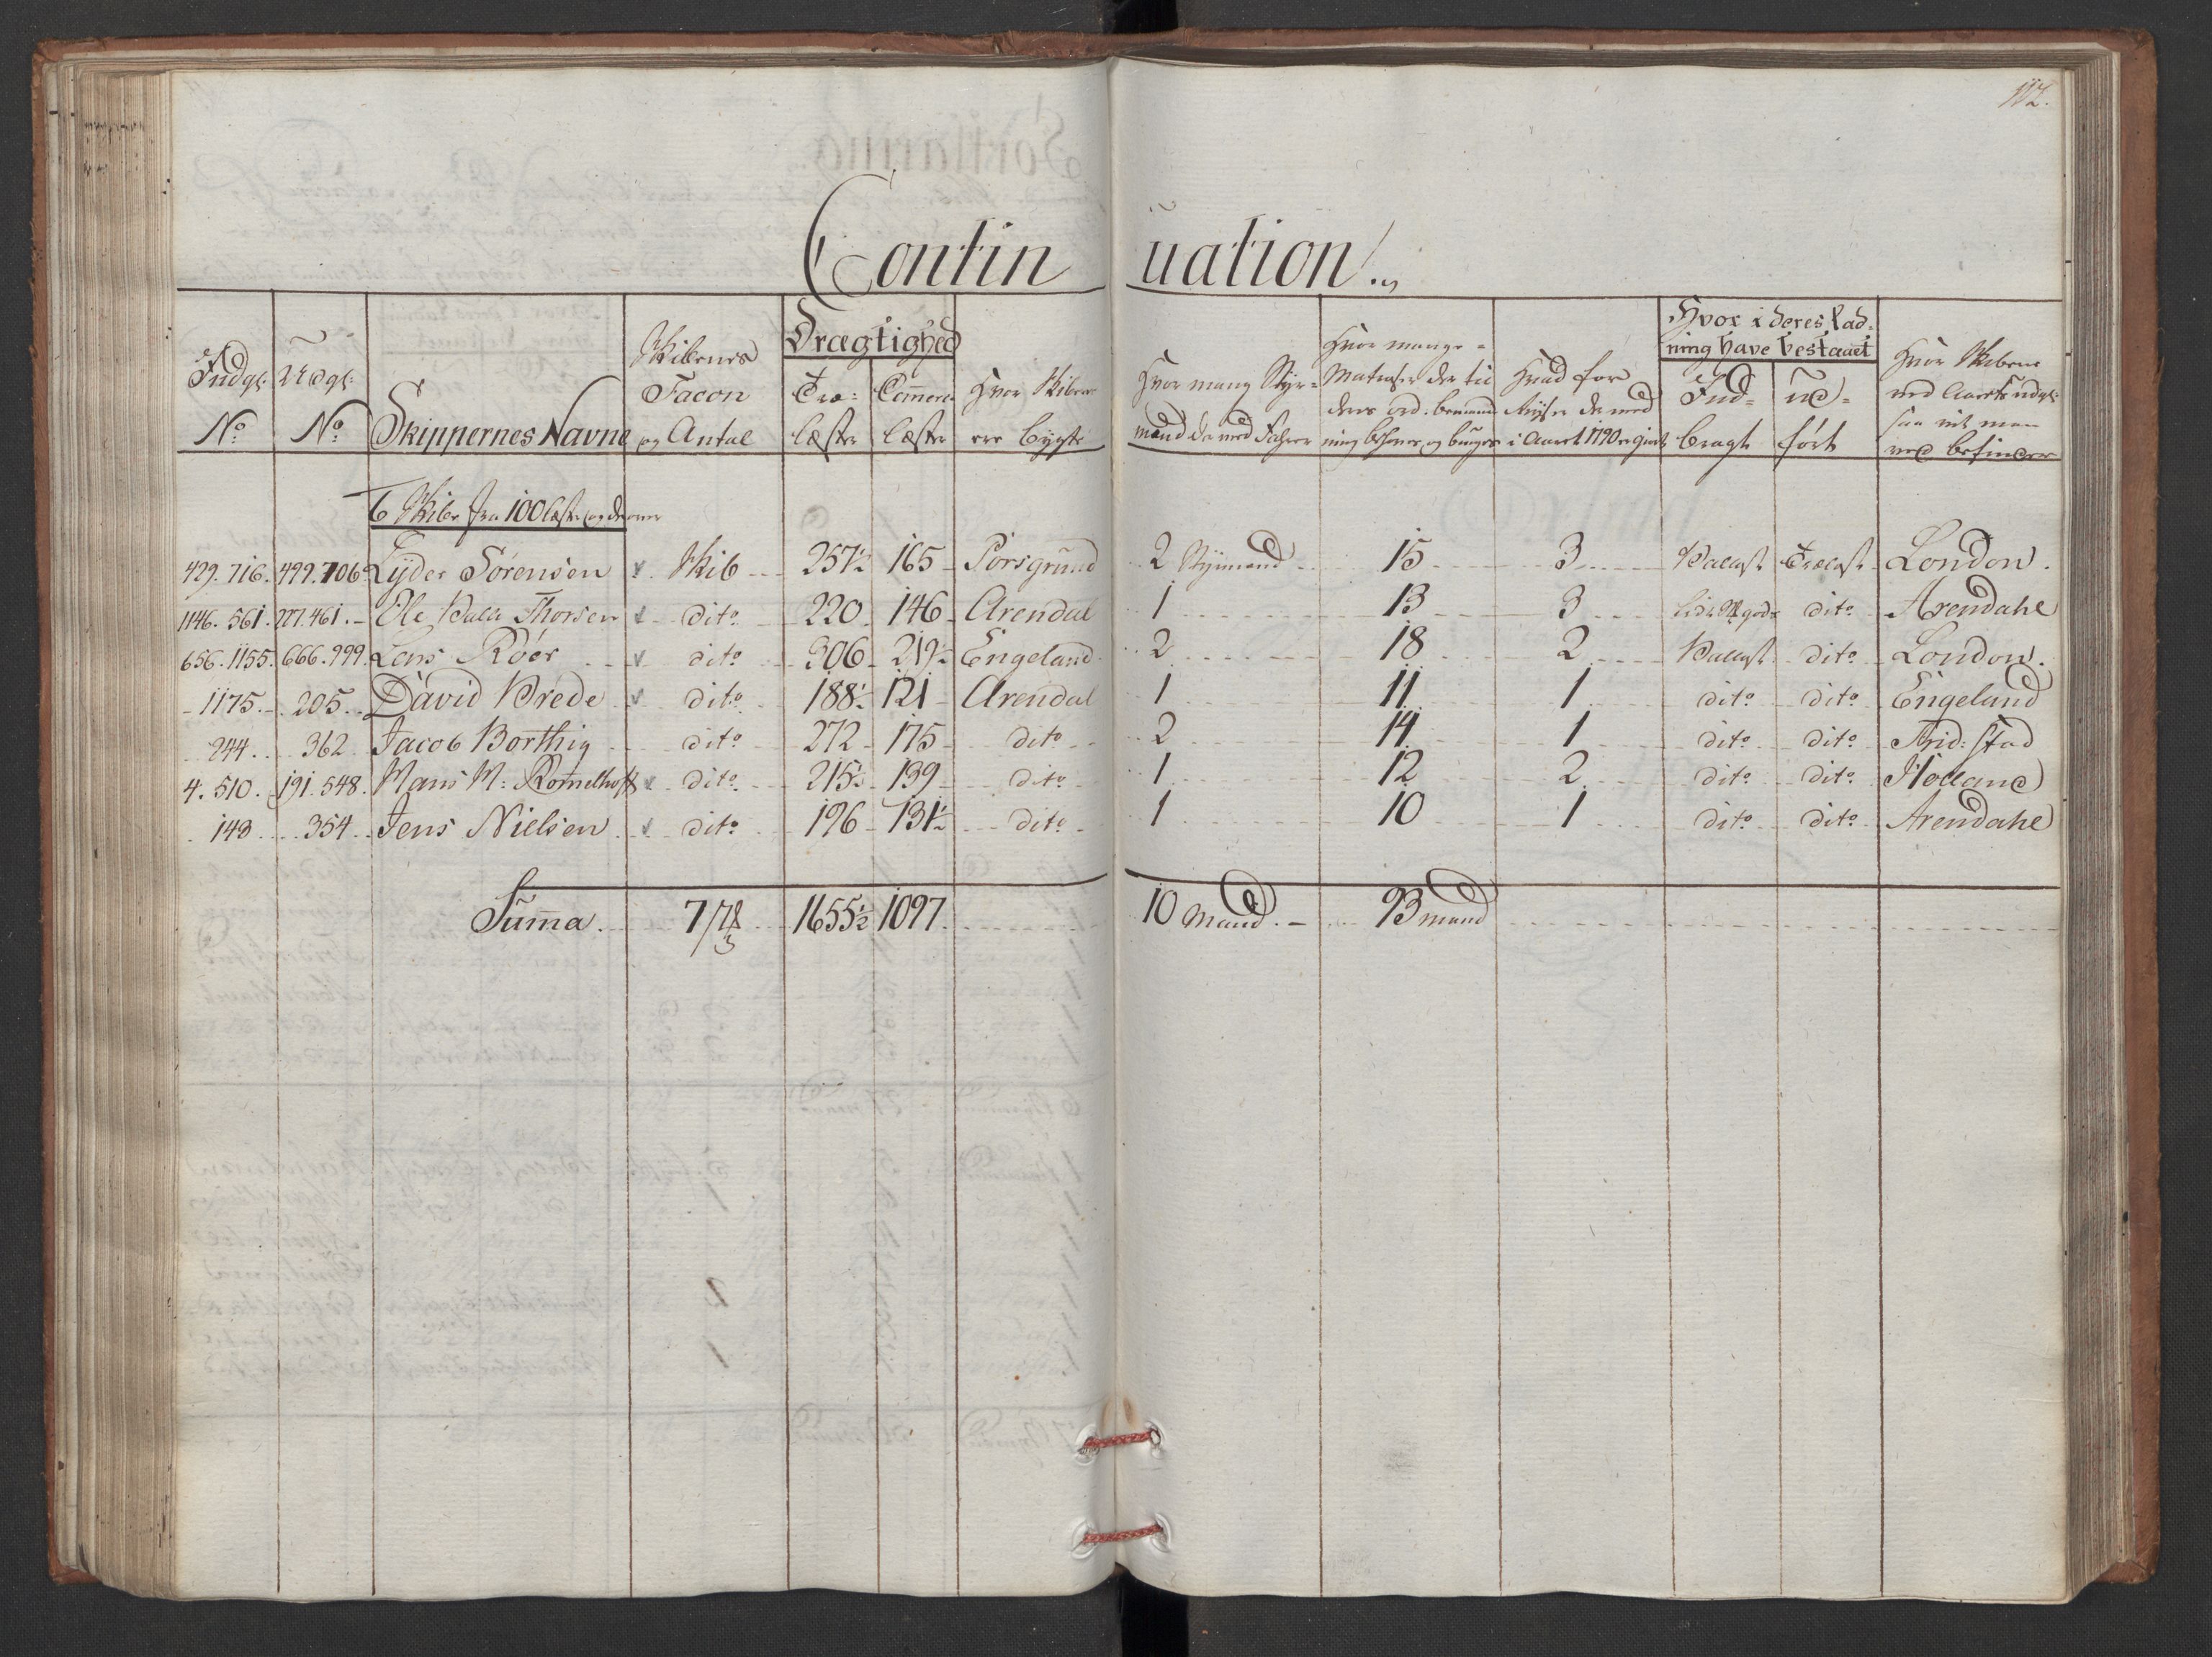 112.
Continuation.
Indgl: No
Udgl: No
Skippernes Navne
Skibenes Facon og Antal
Drægtighed
Træ: læster
Commerce læster
Hvor Skibene ere bygte
Hvor mang Styrmænd de med Fahrer
Hvor mange Matroser der til deres ord. bemanding behøves og bruges
Hvad for Reyser de med i Aaret 1790 er giort
Hvor i deres Ladning have bestaaet
Ind- bragt
ud- ført
Hvor Skibene ved Aarets udgl: saavit man ved befinder
6 Skibe fra 100 læster og derover
429. 716. 499. 706. Lyder Sörensen Skib 257½ 165 Porsgrund 2 Styrmænd 15 3 Ballast Trælast London.
1146. 561. 277. 461. Ole Balle Thorsen dito 220 146 Arendal 1 13 3 dito Arendahl
656. 1155. 666. 999. Lars Röer dito 306 219½ Engeland 2 18 2 Ballast dito London.
1175. 205. David Vrede dito 188½ 121 Arendal 1 11 1 dito dito Engeland
244. 362 Jacob Borthig dito 272 175 dito 2 14 1 dito dito Frid: stad
4. 510. 191. 548. Hans M: Romelhoff dito 215½ 139 dito 1 12 2 dito dito Holland
143 354 Jens Nielsen dito 196 131½ dito 1 10 1 dito dito Arendahl
Suma. 7/78/3 1655½ 1097. 10 Mand. 93 mand